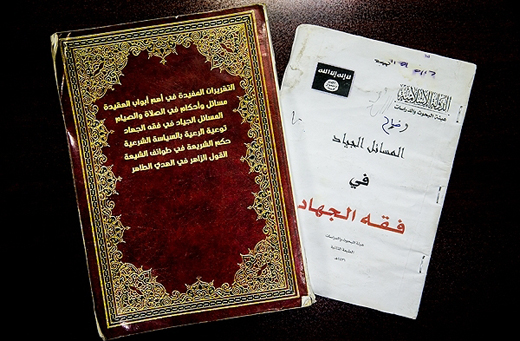 التقريرات المفيدة في أهم أبواب العقيدة
مسائل وأحكام في الصلاة والصيام
المسائل الجياد في فقه الجهاد
توعية الرعية بالسياسة الشرعية
حكم الشريعة في طوائف الشيعة
القول الزاهر في الهدي الطاهر
لا إله إلا الله
الدولة الإسلامية
هيئة البحوث والدراسات
المسائل الجياد
في
فقه الجهاد
هيئة البحوث والدراسات
الطبعة الثانية